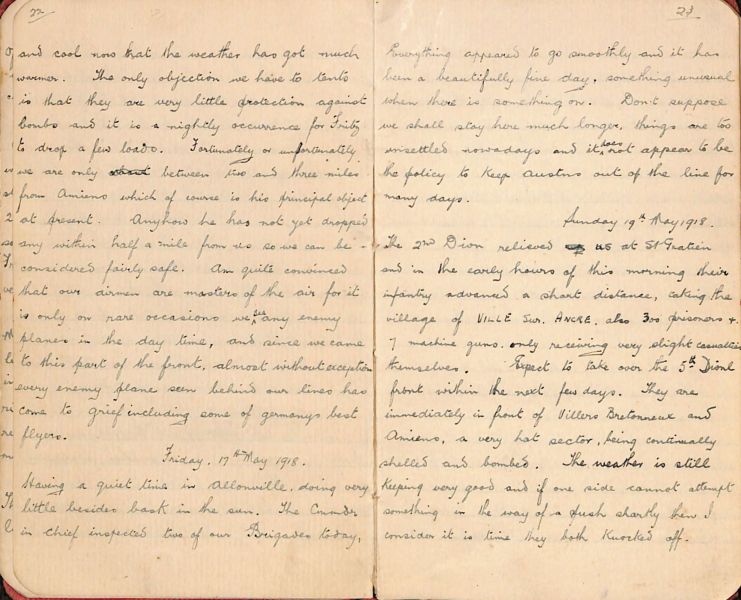 22
and cool now that the weather has got much
warmer. The only objection we have to tents
is that they are very little protection against
bombs and it is a nightly occurrence for Fritz
to drop a few loads. Fortunately or unfortunately
we are only between two and three miles
from Amiens which of course is his principal object
at present. Anyhow he has not yet dropped
any within half a mile from us so we can be -
considered fairly safe. Am quite convinced
that our airmen are masters of the air for it
is only on rare occasions we see any enemy
planes in the day time, and since we came
to this part of the front, almost without exception
every enemy plane seen behind our lines has
come to grief including some of germanys best
flyers.
Friday. 17th May 1918.
Having a quiet time in Allonville, doing very
little besides bask in the sun. The Commder
in chief inspected two of our Brigades today,
23
Everything appeared to go smoothly and it has
been a beautifully fine day, something unusual
when there is something on. Dont suppose
we shall stay here much longer, things are too
unsettled nowadays and it does not appear to be
the policy to keep Austns out of the line for
many days.
Sunday 19th May 1918.
The 2nd Divn relieved us at St Gratien
and in the early hours of this morning their
infantry advanced a short distance, taking the
village of VILLE Sur. ANCRE. also 300 prisoners +
7 machine guns. only receiving very slight casualties
themselves. Expect to take over the 5th Divnl
front within the next few days. They are
immediately in front of Villers Bretonneux and
Amiens, a very hot sector, being continually
shelled and bombed. The weather is still
keeping very good and if one side cannot attempt
something in the way of a push shortly then I
consider it is time they both knocked off.